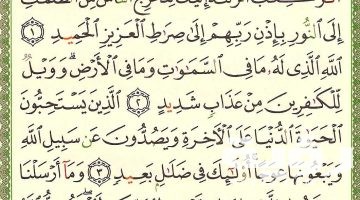 الر كتاب أنزلناه إليك لتخرج الناس من الظلمات
إِلَى ٱلنُّورِ بِإِذْنِ رَبِّهِمْ إِلَىٰ صِرَٰطِ ٱلْعَزِيزِ ٱلْحَمِيدِ ١
ٱللَّهِ ٱلَّذِى لَهُۥ مَا فِى ٱلسَّمَٰوَٰتِ وَمَا فِى ٱلْأَرْضِ ۗ وَوَيْلٌ
لِّلْكَٰفِرِينَ مِنْ عَذَابٍ شَدِيدٍ ٢ ٱلَّذِينَ يَسْتَحِبُّونَ
ٱلْحَيَوٰةَ ٱلدُّنْيَا عَلَى ٱلْءَاخِرَةِ وَيَصُدُّونَ عَن سَبِيلِ ٱللَّهِ
وَيَبْغُونَهَا عِوَجًا ۚ أُو۟لَٰٓئِكَ فِى ضَلَٰلٍۭ بَعِيدٍ ٣ وَمَآ أَرْسَلْنَا